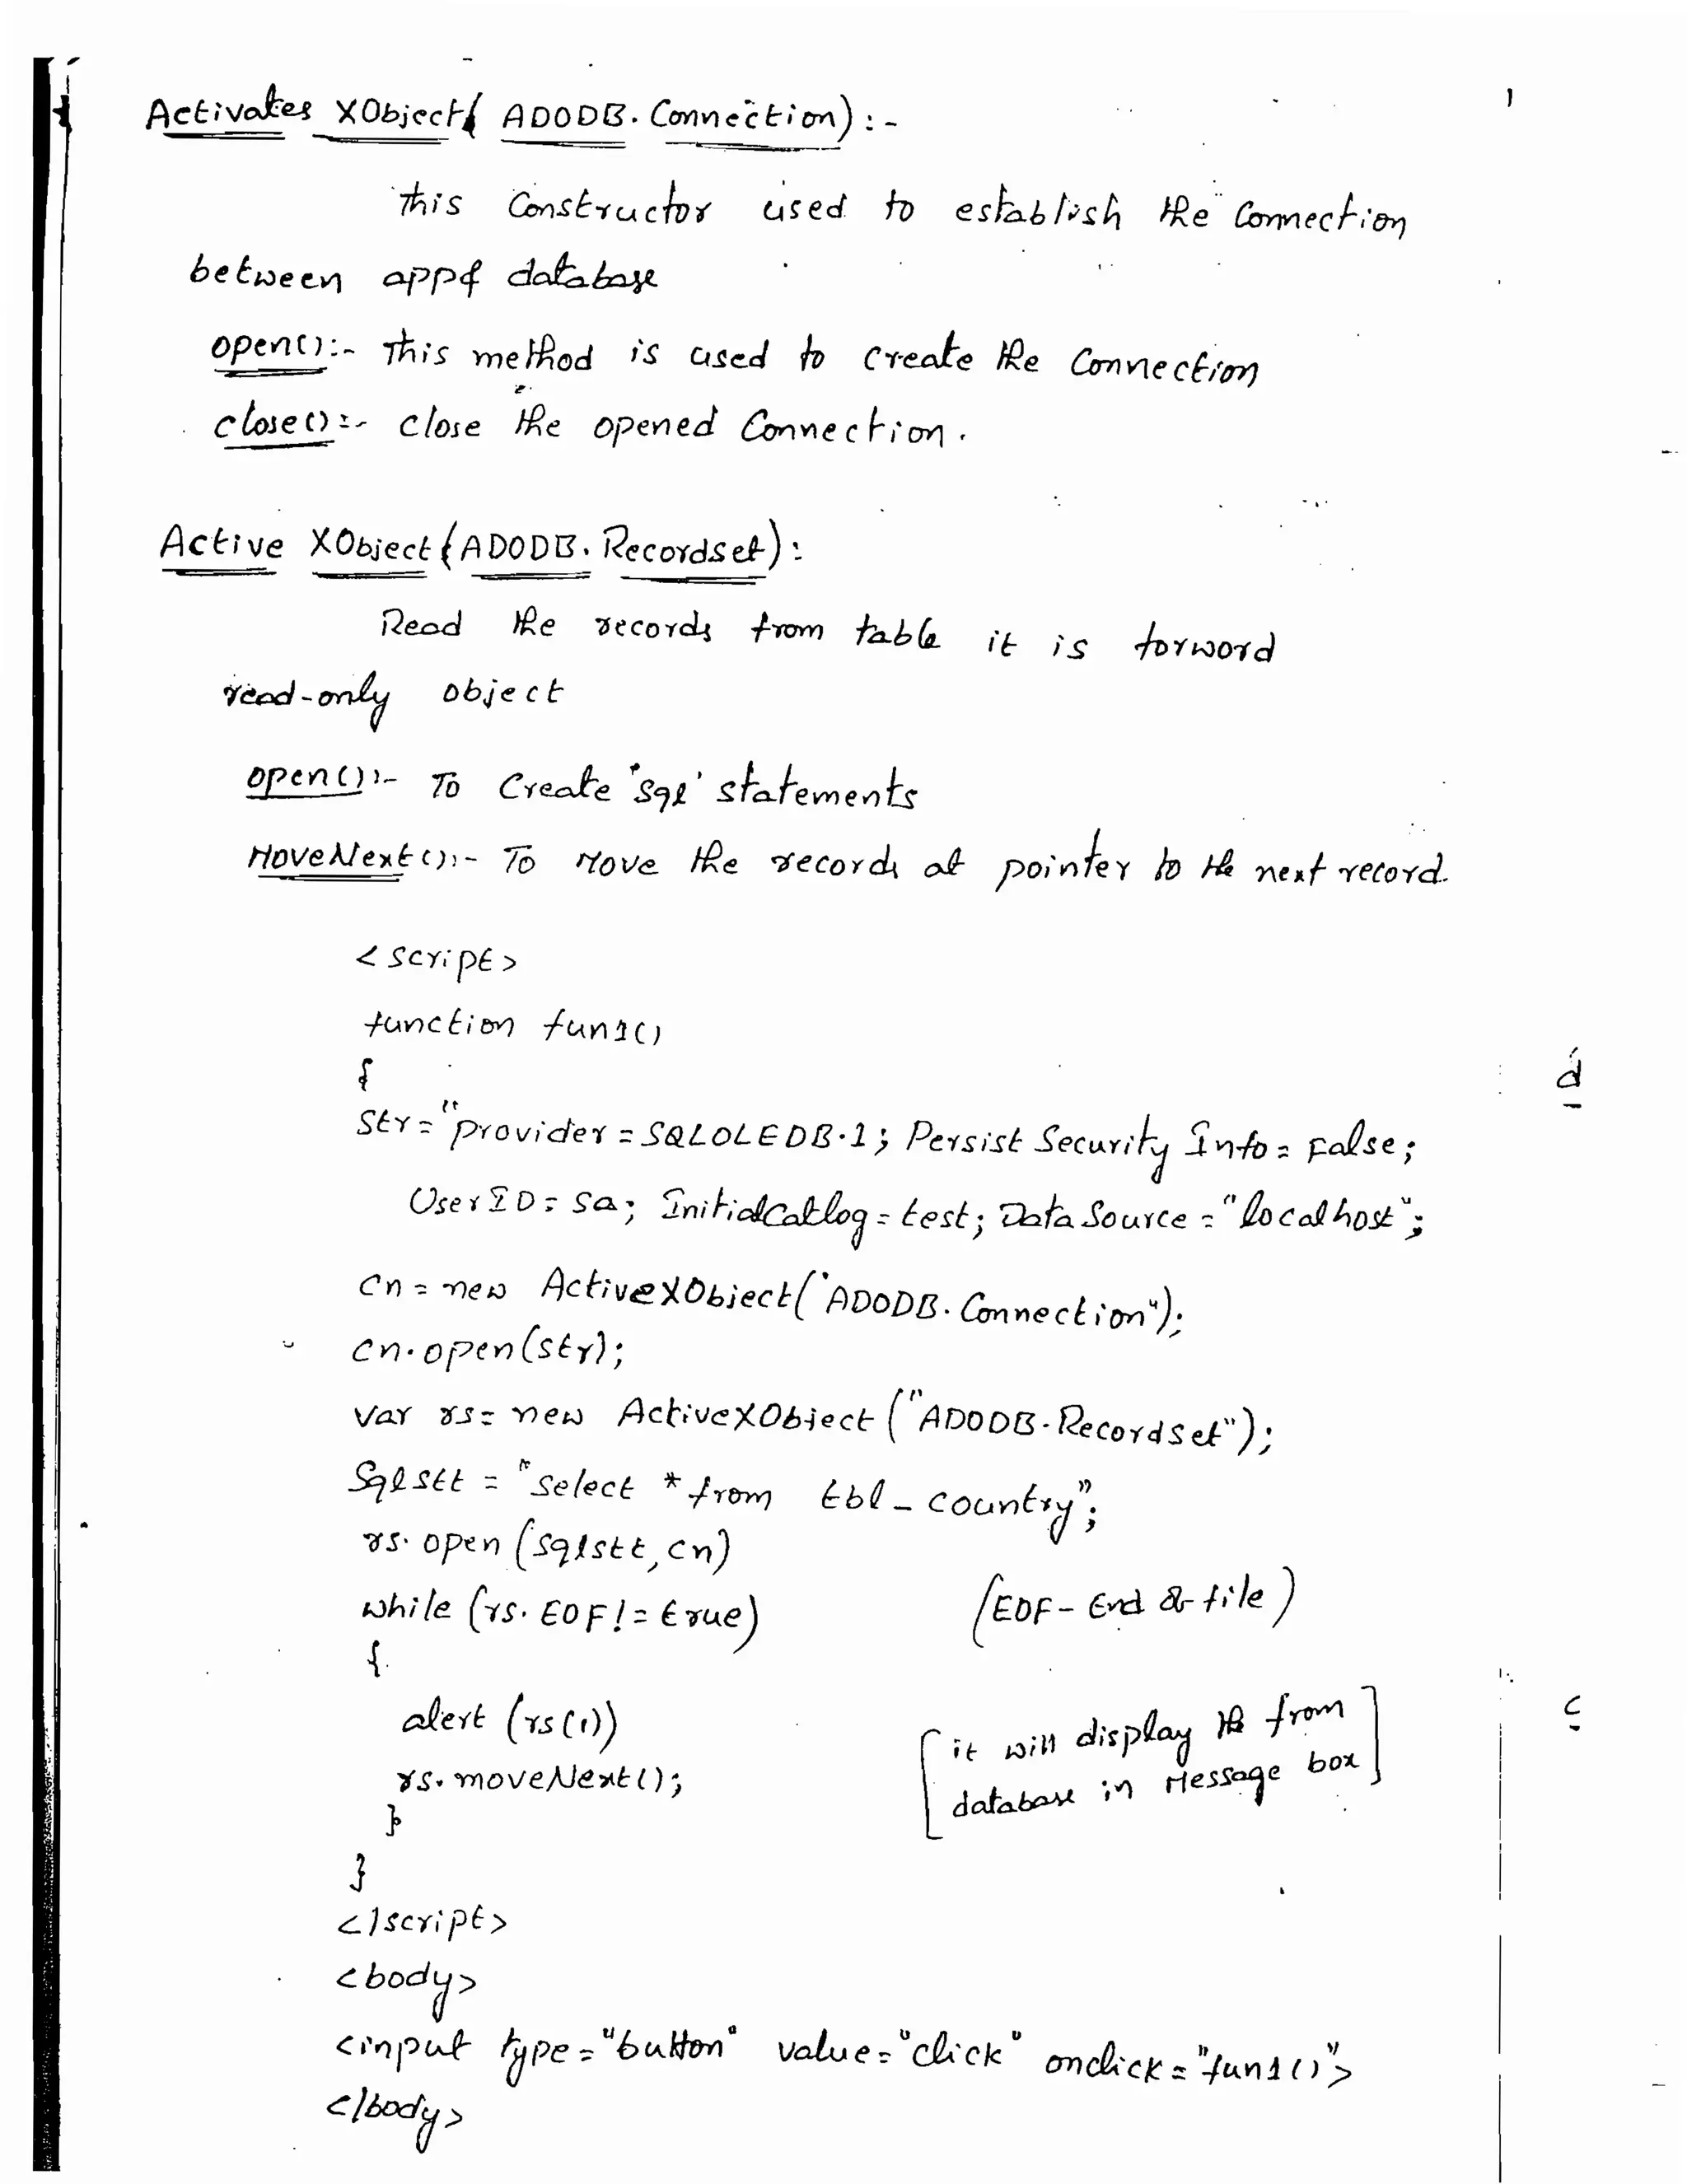 Activates XObject( ADODB.Connection) :-
This Constructor used to establish the Connection
between app& database
open():- This method is used to create the Connection
close():- close the opened Connection.
Active XObject(ADODB.Recordset):
Read the records from table it is forword
read-only object
open():- To Create 'sql' statements
MoveNext():- To Move the records at pointer to the next record.
<script>
function fun1()
{
Str="provider=SQLOLEDB.1; Persist Security Info=False;
UserID=sa; InitialCatlog=test; Data Source="localhost";
cn=new ActiveXObject("ADODB.Connection");
cn.open(str);
Var rs=new ActiveXObject("ADODB.Recordset");
Sqlstt = "Select *from tbl_country";
rs.open (sqlstt,cn)
while (rs.EOF!=true) (EOF- End of file)
{
alert (rs(1)) [it will display the from
rs.moveNext(); database in Message box]
}
}
</script>
<body>
<input type="button" value="click" onclick="fun1()">
</body>